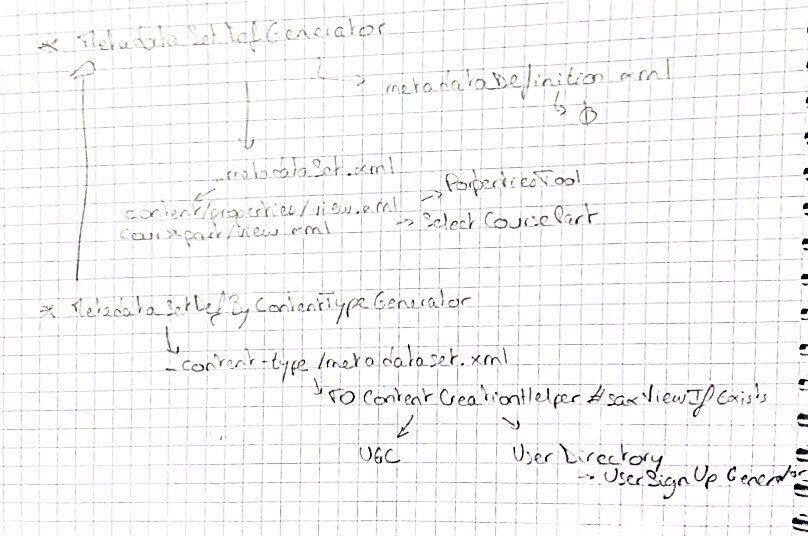 * MetadataSetDefGenerator
↳ metadataDefinition.xml
↳ D
- metadataSet.xml
content/properties/view.xml → PropertiesTool
coursepart/view.xml → Select CoursePart
* MetadataSetDefByContentTypeGenerator
- content-type/metadataset.xml
↳ FO ContentCreationHelper #saxViewIfExists
UGC
User Directory
→ UserSignUpGenerator